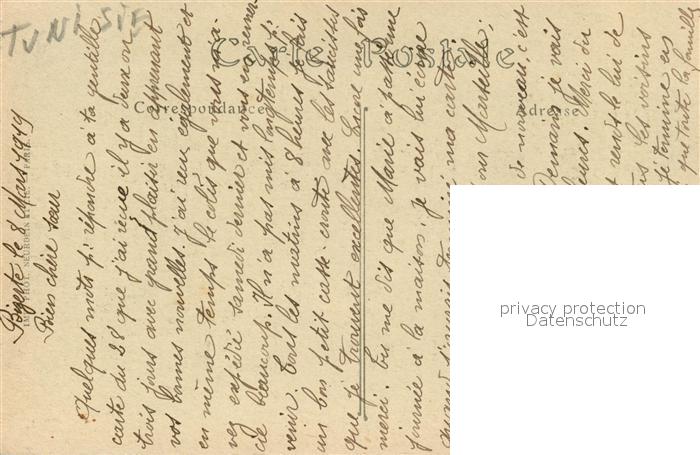 TUNISIE
Carte Postale
Correspondance
Adresse
Bizerte le 8 Mars 1919
Bien chère sœur
Quelques mots pr répondre à ta gentille
carte du 28 que j'ai reçue il y a deux ou
trois jours avec grand plaisir en apprenant
vos bonnes nouvelles. J'ai reçu également et
en même temps le colis que vous m'a-
vez expédié samedi dernier et vous en remer
cie beaucoup. Il n'a pas mis longtemps pr
venir. Tous les matins à 8 heures je fais
un bon petit casse-croute avec les saucisses
que je trouvent excellentes. Encore une fois
merci. Tu me dis que Marie a passé une
journée à la maison, je vais lui écrire
quand j'aurais terminé ma carte
Marseille;
de nouveau c'est
Demain je vais
Merci du
rends le lui de
les voisins
je termine en
toute la famille
privacy protection
Datenschutz